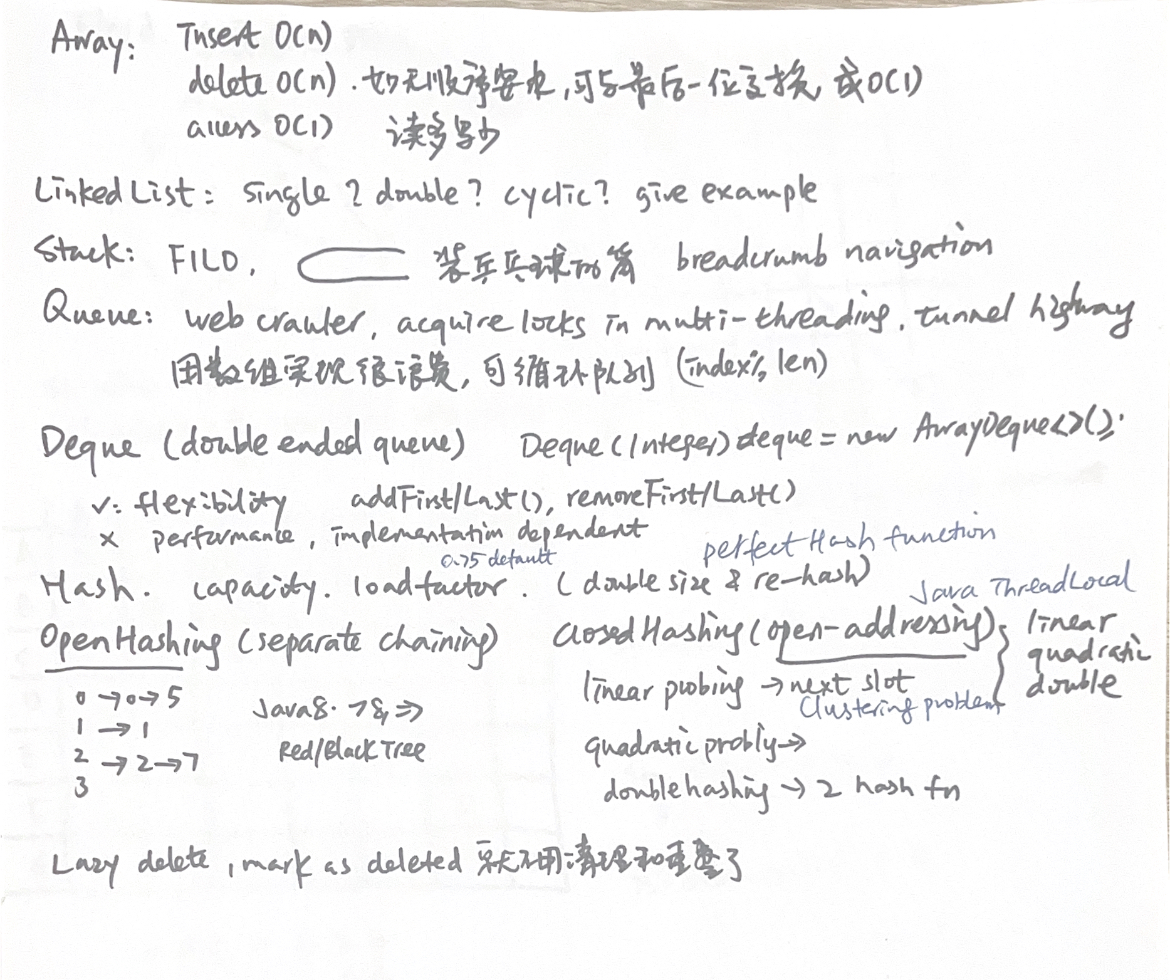 Array: Insert O(n)
delete O(n). 如无顺序要求,可与最后一位交换, 或O(1)
access O(1) 读多写少
LinkedList: single? double? cyclic? give example
Stack: FILO, 装乒乓球的筒 breadcrumb navigation
Queue: web crawler, acquire locks in multi-threading, tunnel highway
用数组实现很浪费,可循环队列 (index % len)
Deque (double ended queue) Deque<Integer> deque = new ArrayDeque<>();
✓: flexibility addFirst/Last(), removeFirst/Last()
× performance, implementation dependent
0.75 default perfect Hash function
Hash. capacity. load factor. (double size & re-hash)
Java ThreadLocal
Open Hashing (separate chaining) Closed Hashing (open-addressing) } linear
quadratic
double
0 → 0 → 5
1 → 1
2 → 2 → 7
3
Java8. >8, ⇒
Red/Black Tree
linear probing → next slot
Clustering problem
quadratic probly →
double hashing → 2 hash fn
Lazy delete, mark as deleted 就不用清理和重整了